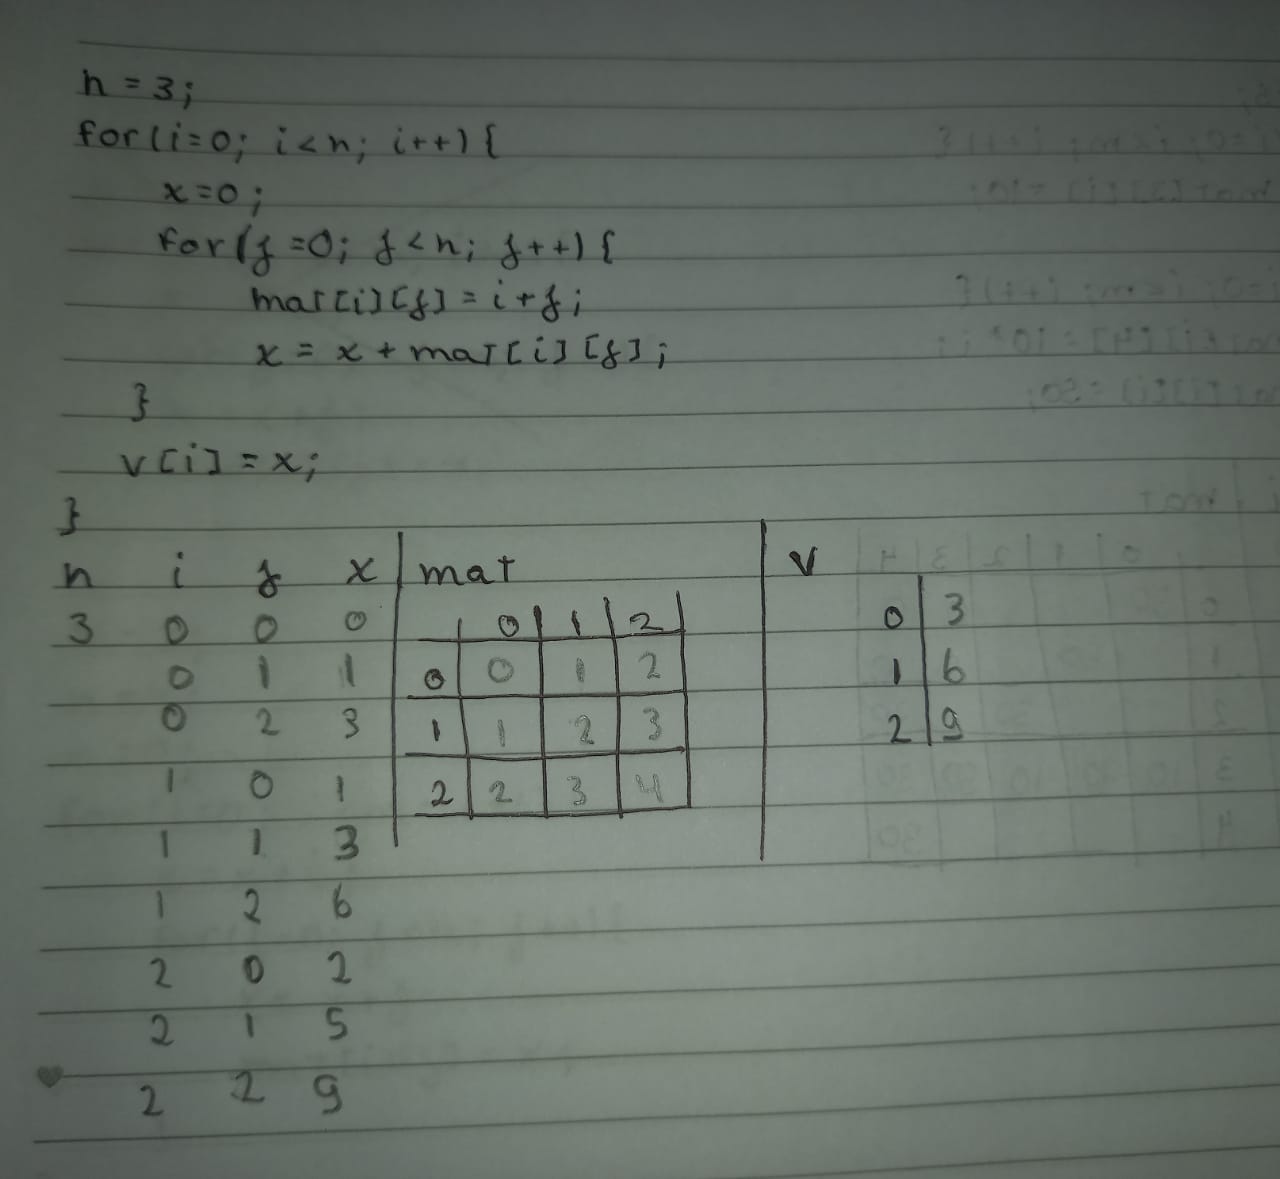 n = 3;
for(i=0; i<n; i++){
x=0;
for(j=0; j<n; j++){
mat[i][j] = i+j;
x = x + mat[i][j];
}
v[i] = x;
}
n i j x mat v
3 0 0 0
0 1 1
0 2 3
1 0 1
1 1 3
1 2 6
2 0 2
2 1 5
2 2 9
0 1 2
0 0 1 2
1 1 2 3
2 2 3 4
0 3
1 6
2 9